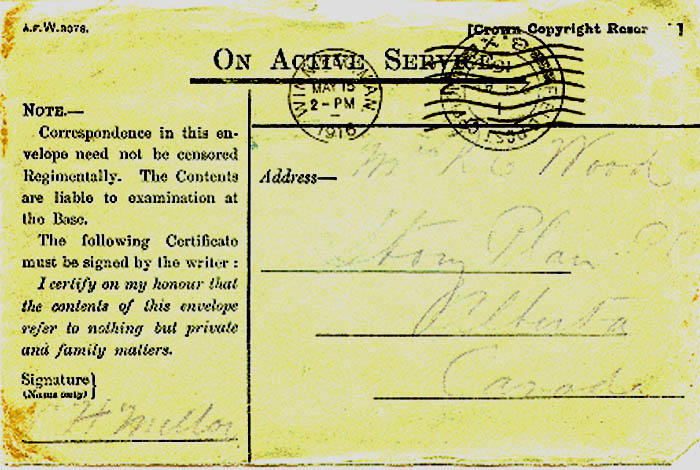 A.F.W.3078.
[Crown Copyright Reser ]
ON ACTIVE SERVICE
MAY 15
2-PM
1916
NOTE.—
Correspondence in this en-
velope need not be censored
Regimentally. The Contents
are liable to examination at
the Base.
The following Certificate
must be signed by the writer :
I certify on my honour that
the contents of this envelope
refer to nothing but private
and family matters.
Signature}
(Name only)
H Mellor
Address—
Wood
Stony Plan
Alberta
Canada